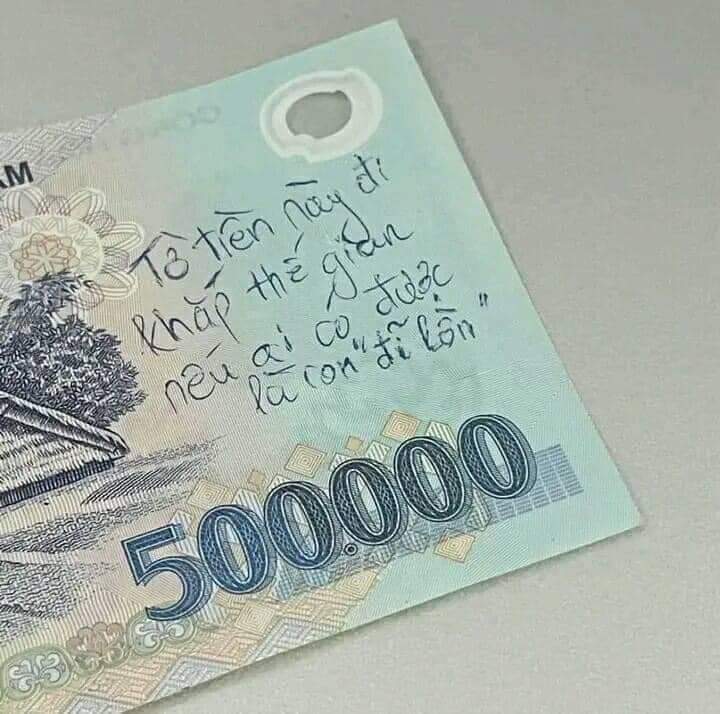 AM
Tờ tiền này đi
khắp thế gian
nếu ai có được
là con "đĩ lồn"
500.000